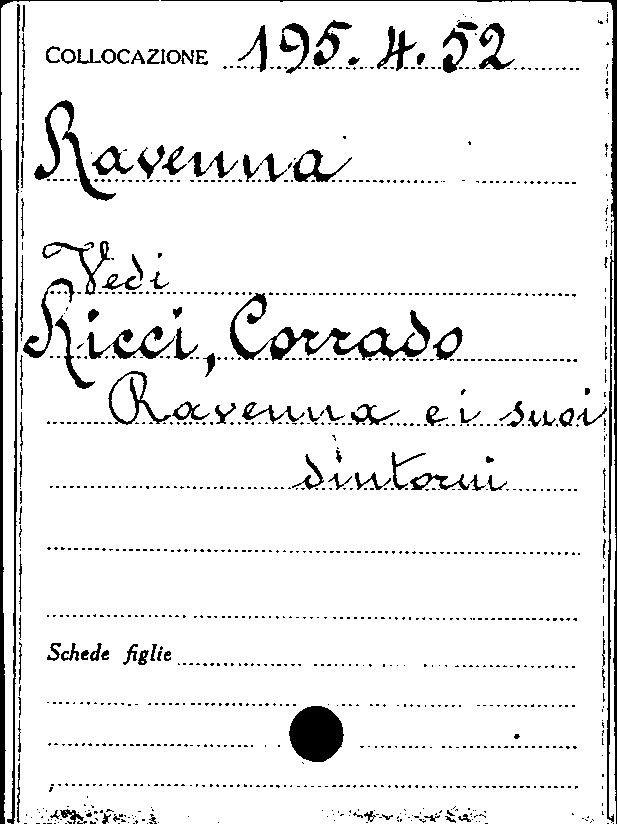 COLLOCAZIONE 195.4.52
Ravenna
Vedi
Ricci, Corrado
Ravenna e i suoi
dintorni
Schede figlie